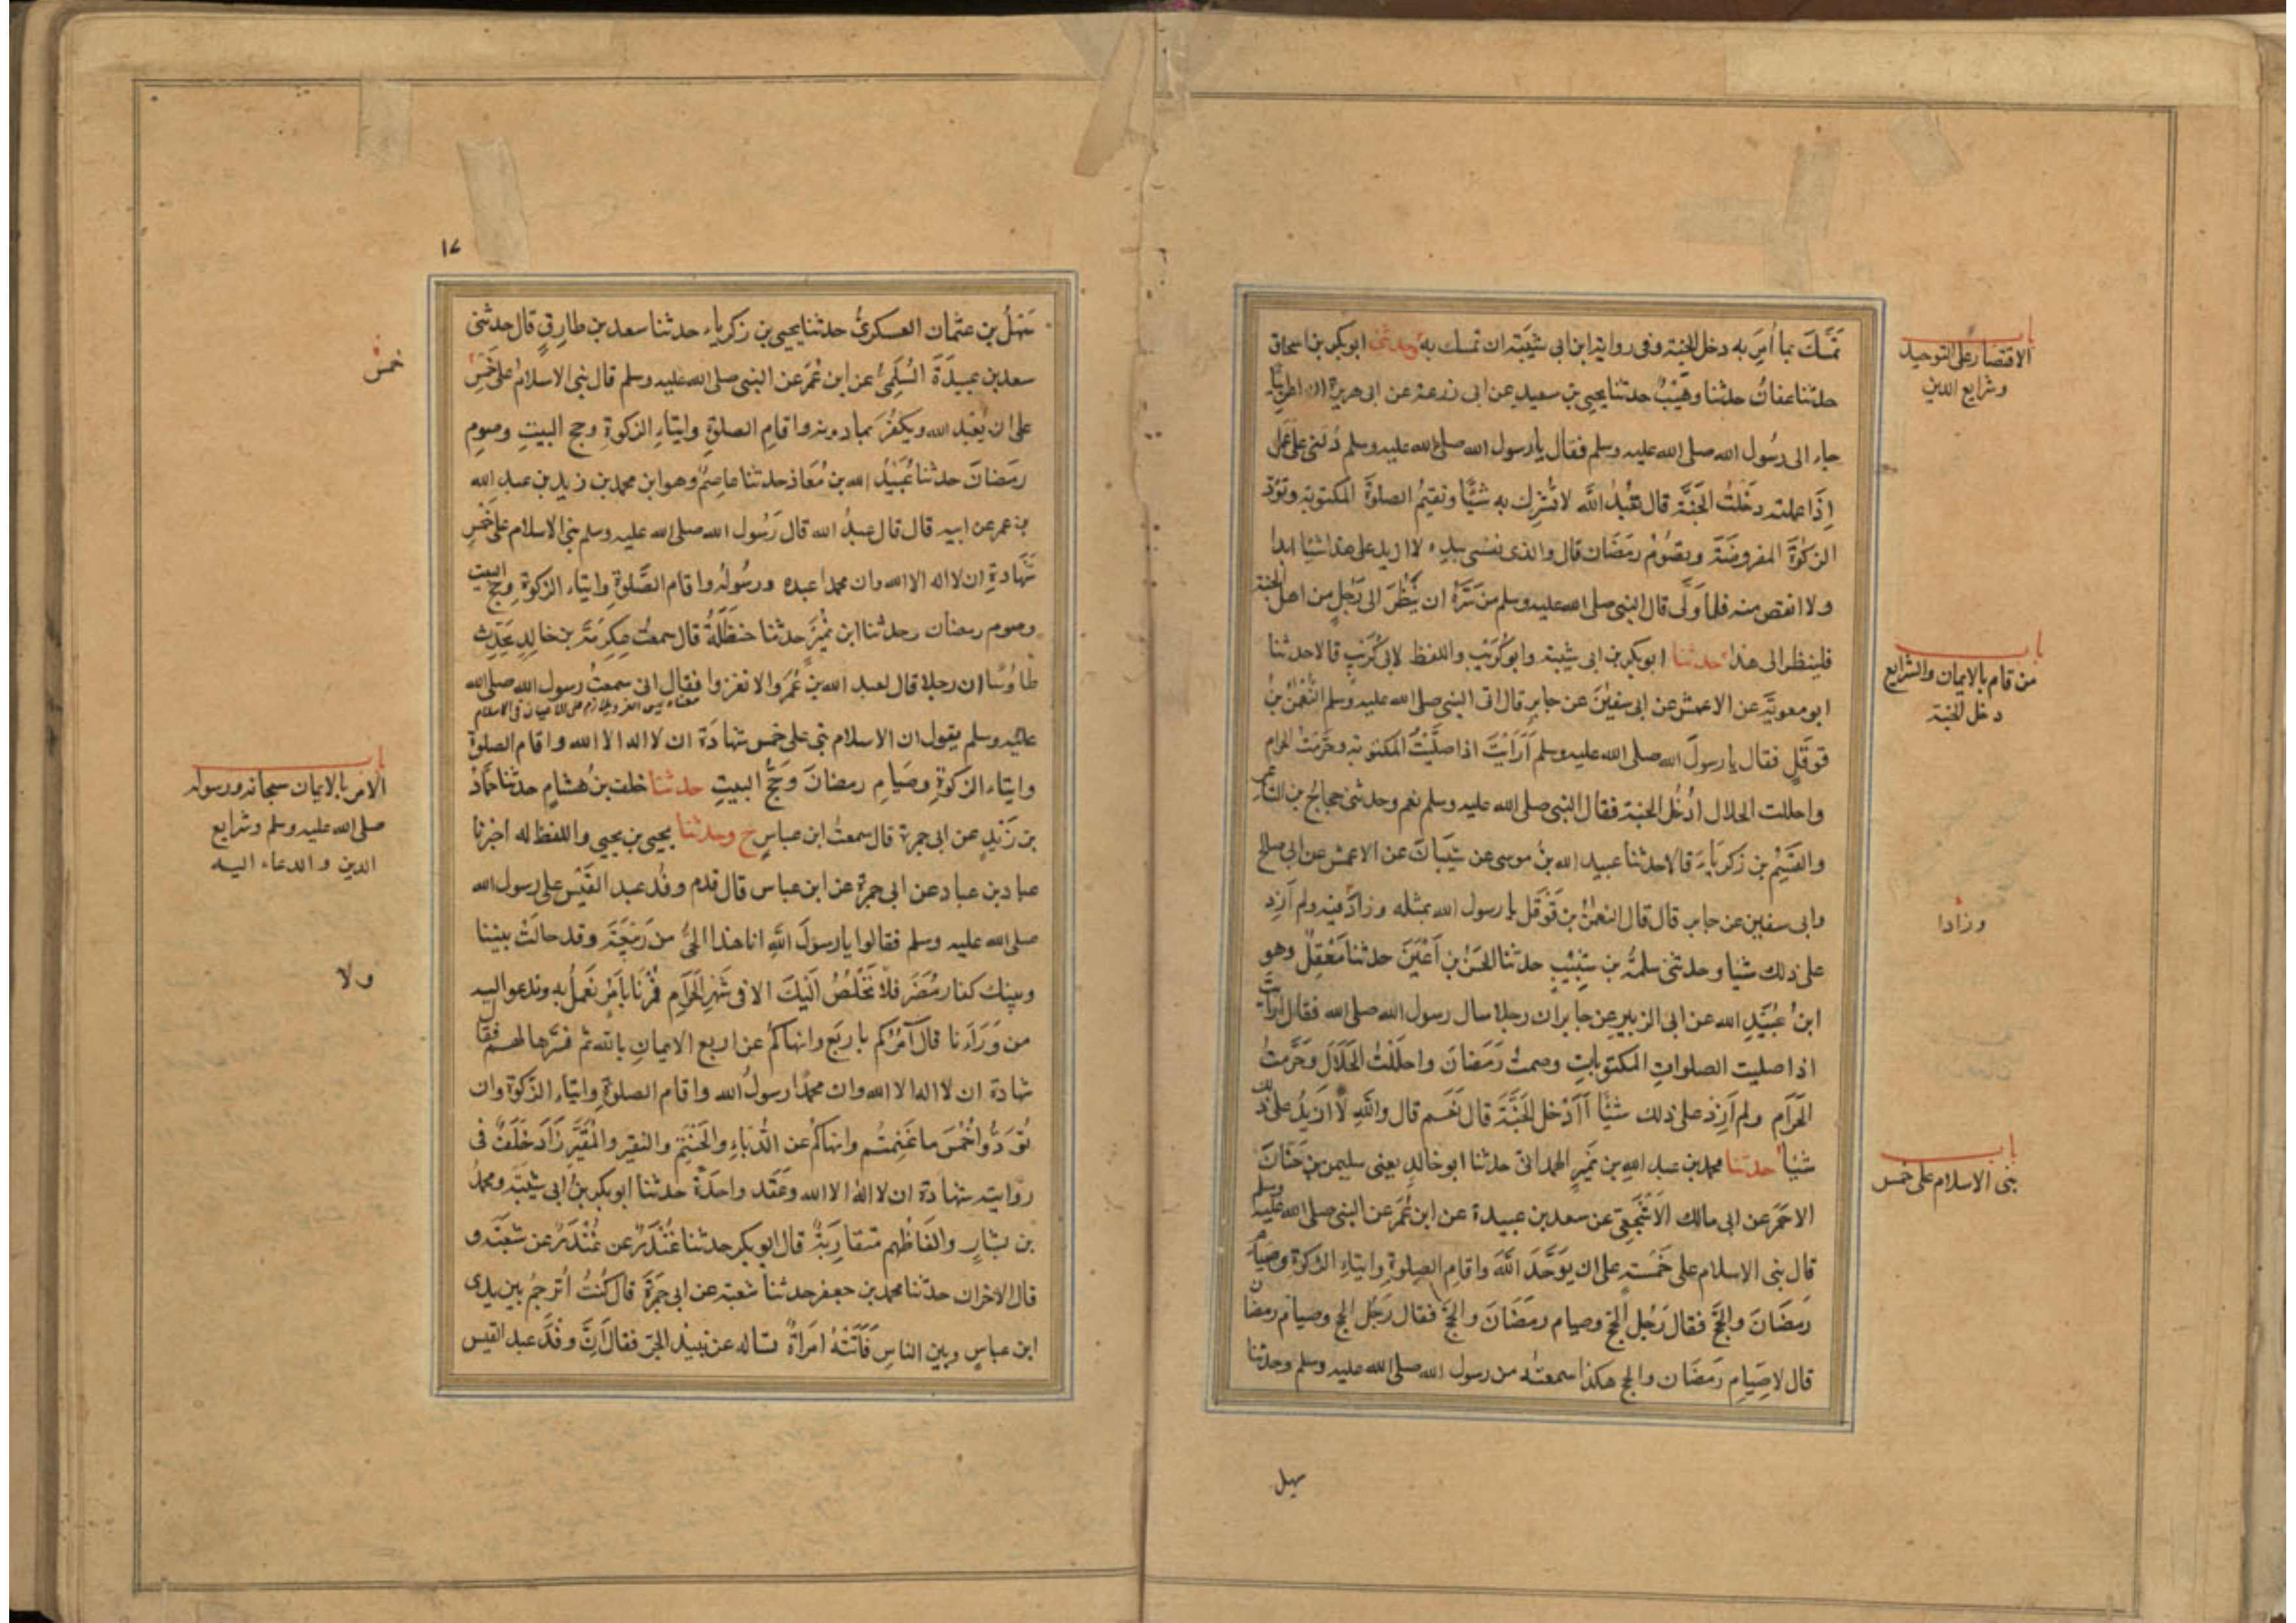 تمسك بما أمر به دخل الجنة وفى رواية ابن ابى شيبة ان تمسك به وحدثنى ابوبكر بن اسحاق
حدثنا عفان حدثنا وهيب حدثنا يحيى بن سعيد عن ابى زرعة عن ابى هريرة ان اعرابيا
جاء الى رسول الله صلى الله عليه وسلم فقال يا رسول الله صلى الله عليه وسلم دلنى على عمل
اذا عملته دخلت الجنة قال تعبد الله لا تشرك به شيئا وتقيم الصلوة المكتوبة وتؤد
الزكوة المفروضة وتصوم رمضان قال والذى نفسى بيده لا ازيد على هذا شيئا ابدا
ولا انقص منه فلما ولى قال النبى صلى الله عليه وسلم من سره ان ينظر الى رجل من اهل الجنة
فلينظر الى هذا حدثنا ابوبكر بن ابى شيبة وابو كريب واللفظ لابى كريب قالا حدثنا
ابو معوية عن الاعمش عن ابى سفين عن جابر قال اتى النبى صلى الله عليه وسلم النعمن بن
قوقل فقال يا رسول الله صلى الله عليه وسلم أرأيت اذا صليت المكتوبة وحرمت الحرام
واحللت الحلال أدخل الجنة فقال النبى صلى الله عليه وسلم نعم وحدثنى حجاج بن الشاعر
والقسيم بن زكرياء قالا حدثنا عبيد الله بن موسى عن شيبان عن الاعمش عن ابى صالح
وابى سفين عن جابر قال قال النعمن بن قوقل يا رسول الله بمثله وزاد فيه ولم ازد
على ذلك شيا وحدثنى سلمة بن شبيب حدثنا الحسن بن أعين حدثنا معقل وهو
ابن عبيد الله عن ابى الزبير عن جابر ان رجلا سال رسول الله صلى الله فقال أرأيت
اذا صليت الصلوات المكتوبات وصمت رمضان واحللت الحلال وحرمت
الحرام ولم ازد على ذلك شيئا أأدخل الجنة قال نعم قال والله لا ازيد على ذلك
شيا حدثنا محمد بن عبد الله بن نمير الهمدانى حدثنا ابو خالد يعنى سليمن بن حيان
الاحمر عن ابى مالك الاشجعى عن سعد بن عبيدة عن ابن عمر عن النبى صلى الله عليه وسلم
قال بنى الاسلام على خمسة على ان يوحد الله واقام الصلوة وايتاء الزكوة وصيام
رمضان والحج فقال رجل الحج وصيام رمضان والحج فقال رجل الحج وصيام رمضان
قال لا صيام رمضان والحج هكذا سمعته من رسول الله صلى الله عليه وسلم وحدثنا
سهل
باب
الاقتصار على التوحيد
وشرايع الدين
باب
من قام بالايمان والشرايع
دخل الجنة
وزادا
باب
بنى الاسلام على خمس
١٧
سهل بن عثمان العسكرى حدثنا يحيى بن زكرياء حدثنا سعد بن طارق قال حدثنى
سعد بن عبيدة السلمى عن ابن عمر عن النبى صلى الله عليه وسلم قال بنى الاسلام على خمس
على ان يعبد الله ويكفر بما دونه واقام الصلوة وايتاء الزكوة وحج البيت وصوم
رمضان حدثنا عبيد الله بن معاذ حدثنا عاصم وهو ابن محمد بن زيد بن عبد الله
بن عمر عن ابيه قال قال عبد الله قال رسول الله صلى الله عليه وسلم بنى الاسلام على خمس
شهادة ان لا اله الا الله وان محمدا عبده ورسوله واقام الصلوة وايتاء الزكوة وحج البيت
وصوم رمضان وحدثنا ابن نمير حدثنا حنظلة قال سمعت عكرمة بن خالد يحدث
طاوسا ان رجلا قال لعبد الله بن عمر والا تغزوا فقال انى سمعت رسول الله صلى الله
معناه ليس الغزو بلازم على الاعيان فى الاسلام
عليه وسلم يقول ان الاسلام بنى على خمس شهادة ان لا اله الا الله واقام الصلوة
وايتاء الزكوة وصيام رمضان وحج البيت حدثنا خلف بن هشام حدثنا حماد
بن زيد عن ابى جمرة قال سمعت ابن عباس ح وحدثنا يحيى بن يحيى واللفظ له اخبرنا
عباد بن عباد عن ابى جمرة عن ابن عباس قال قدم وفد عبد القيس على رسول الله
صلى الله عليه وسلم فقالوا يا رسول الله انا هذا الحى من ربيعة وقد حالت بيننا
وبينك كفار مضر فلا نخلص اليك الا فى شهر الحرام فمرنا بامر نعمل به وندعو اليه
من وراءنا قال آمركم باربع وانهاكم عن اربع الايمان بالله ثم فسرها لهم فقال
شهادة ان لا اله الا الله وان محمدا رسول الله واقام الصلوة وايتاء الزكوة وان
تؤدوا خمس ما غنمتم وانهاكم عن الدباء والحنتم والنقير والمقير زاد خلف فى
روايته شهادة ان لا اله الا الله وعقد واحدة حدثنا ابوبكر بن ابى شيبة ومحمد
بن بشار والفاظهم متقاربة قال ابوبكر حدثنا غندر عن غندر عن شعبة و
قال الاخران حدثنا محمد بن جعفر حدثنا شعبة عن ابى جمرة قال كنت أترجم بين يدى
ابن عباس وبين الناس فأتته امرأة تساله عن نبيذ الجر فقال ان وفد عبد القيس
خمس
باب
الامر بالايمان سبحانه ورسوله
صلى الله عليه وسلم وشرايع
الدين والدعاء اليه
ولا